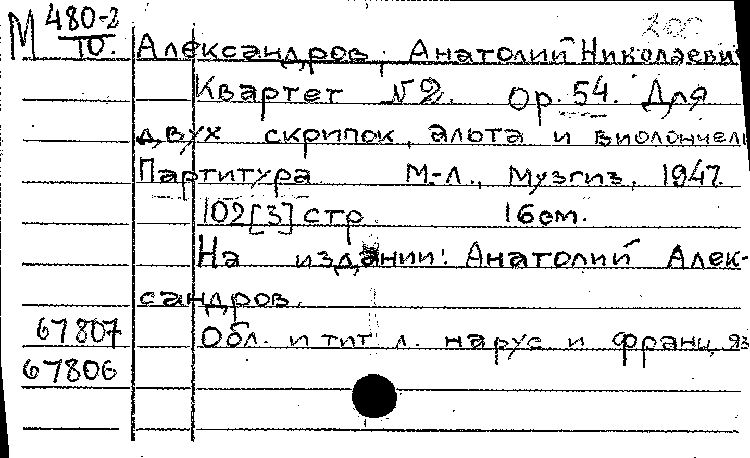 М 480-2
10.
Александров, Анатолий Николаеви
Квартет №2. Ор. 54. Для
двух скрипок, альта и виолончел
Партитура М.-Л., Музгиз, 1947.
102[3] стр. 16см.
На издании: Анатолий Алек-
сандров.
67807 Обл. и тит. л. на рус. и франц. яз
67806